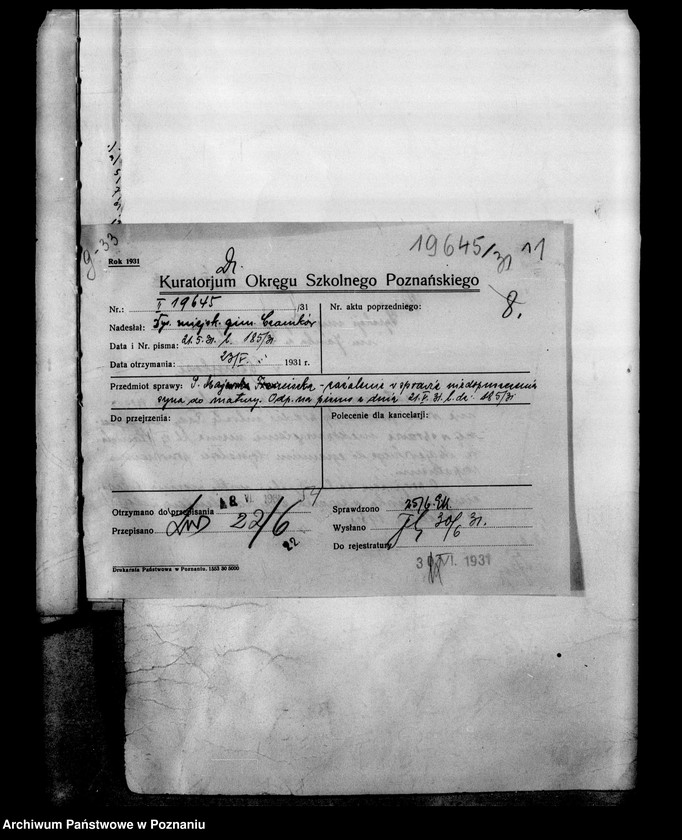 g-33
19645/31
11
Rok 1931
Dr.
Kuratorjum Okręgu Szkolnego Poznańskiego
8.
Nr.: I 19645 /31
Nr. aktu poprzedniego:
Nadesłał: Dyr. miejsk. gim. Czarnków
Data i Nr. pisma: 21.5.31. l. 185/31
Data otrzymania: 23/V. 1931 r.
Przedmiot sprawy: P. Majewska Franciszka - zażalenie w sprawie niedopuszczenia
syna do matury. Odp. na pismo z dnia 21.V.31. l. dz. 185/31
Do przejrzenia:
Polecenie dla kancelarji:
Otrzymano do przepisania
Sprawdzono 25/6.
Przepisano 22/6
22
Wysłano 30/6 31.
Do rejestratury
30 VI. 1931
Drukarnia Państwowa w Poznaniu. 1353 30 5000
Archiwum Państwowe w Poznaniu